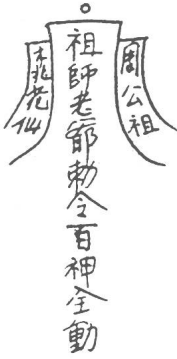 周公祖
祖師老爺勅令百神全動
桃花仙